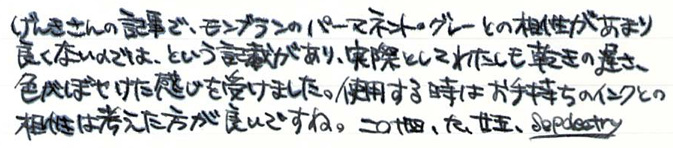 げんきさんの記事で、モンブランのパーマネントグレーとの相性があまり
良くないのでは、という記載があり、実際としてわたしも乾きの遅さ、
色がぼせけた感じを受けました。使用する時はお手持ちのインクとの
相性は考えた方が良いですね。